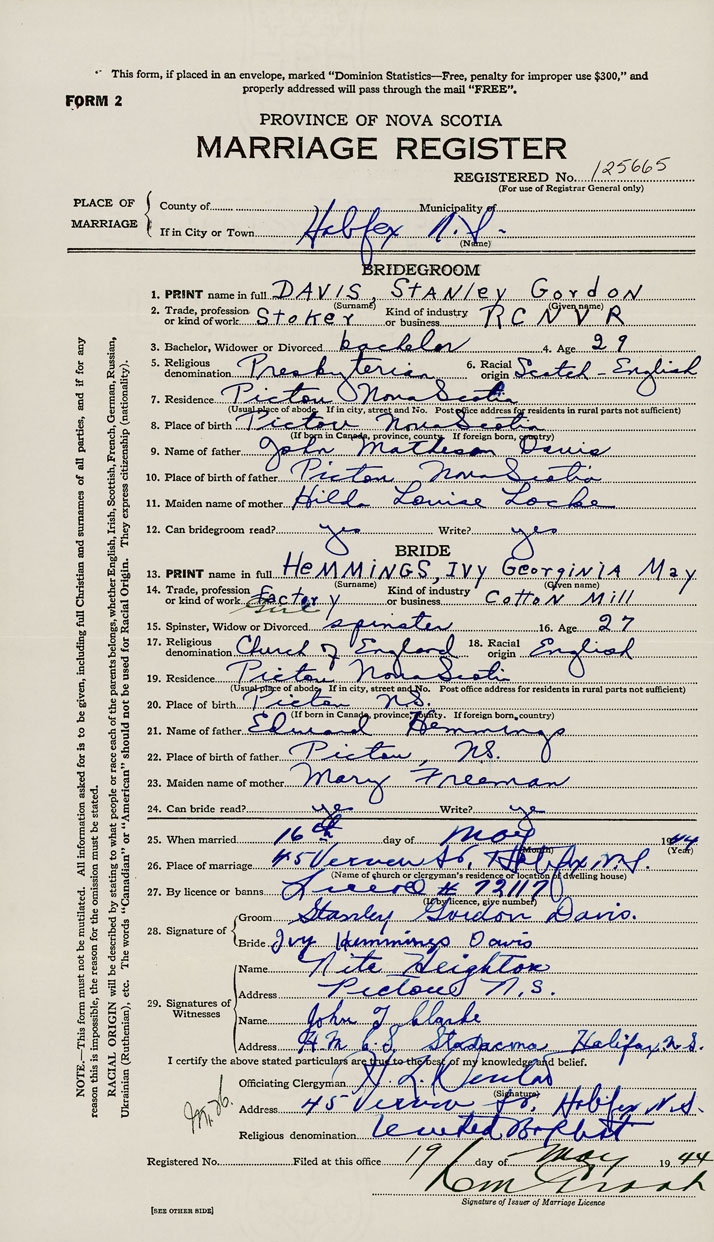 This form, if placed in an envelope, marked "Dominion Statistics—Free, penalty for improper use $300," and
properly addressed will pass through the mail "FREE".
FORM 2
PROVINCE OF NOVA SCOTIA
MARRIAGE REGISTER
REGISTERED No. 125665
(For use of Registrar General only)
PLACE OF MARRIAGE
County of Municipality of
If in City or Town Halifax N.S.
(Name)
BRIDEGROOM
1. PRINT name in full DAVIS, STANLEY GORDON
(Surname) (Given name)
2. Trade, profession or kind of work Stoker Kind of industry or business RCNVR
3. Bachelor, Widower or Divorced bachelor 4. Age 29
5. Religious denomination Presbyterian 6. Racial origin Scotch-English
7. Residence Pictou Nova Scotia
(Usual place of abode. If in city, street and No. Post office address for residents in rural parts not sufficient)
8. Place of birth Pictou Nova Scotia
(If born in Canada, province, county. If foreign born, country)
9. Name of father John Matheson Davis
10. Place of birth of father Pictou Nova Scotia
11. Maiden name of mother Hilda Louise Locke
12. Can bridegroom read? yes Write? yes
BRIDE
13. PRINT name in full HEMMINGS, IVY GEORGINIA MAY
(Surname) (Given name)
14. Trade, profession or kind of work Factory Girl Kind of industry or business COTTON MILL
15. Spinster, Widow or Divorced spinster 16. Age 27
17. Religious denomination Church of England 18. Racial origin English
19. Residence Pictou Nova Scotia
(Usual place of abode. If in city, street and No. Post office address for residents in rural parts not sufficient)
20. Place of birth Pictou N.S.
(If born in Canada, province, county. If foreign born, country)
21. Name of father Edward Hemmings
22. Place of birth of father Pictou, N.S.
23. Maiden name of mother Mary Freeman
24. Can bride read? yes Write? yes
25. When married 16th day of May 1944
(Month) (Year)
26. Place of marriage 45 Vernon St, Halifax N.S.
(Name of church or clergyman's residence or location of dwelling house)
27. By licence or banns Licence # 72117
(If by licence, give number)
28. Signature of
Groom Stanley Gordon Davis.
Bride Ivy Hemmings Davis
29. Signatures of Witnesses
Name Heighton
Address Pictou N.S.
Name John Clarke
Address H.M.C.S Stadacona Halifax N.S.
I certify the above stated particulars are true to the best of my knowledge and belief.
Officiating Clergyman
(Signature)
Address 45 Vernon St, Halifax N.S.
Religious denomination United Baptist
Registered No. Filed at this office 19 day of May 1944
Signature of Issuer of Marriage Licence
[SEE OTHER SIDE]
NOTE.—This form must not be mutilated. All information asked for is to be given, including full Christian and surnames of all parties, and if for any
reason this is impossible, the reason for the omission must be stated.
RACIAL ORIGIN will be described by stating to what people or race each of the parents belongs, whether English, Irish, Scottish, French, German, Russian,
Ukrainian (Ruthenian), etc. The words "Canadian" or "American" should not be used for Racial Origin. They express citizenship (nationality).